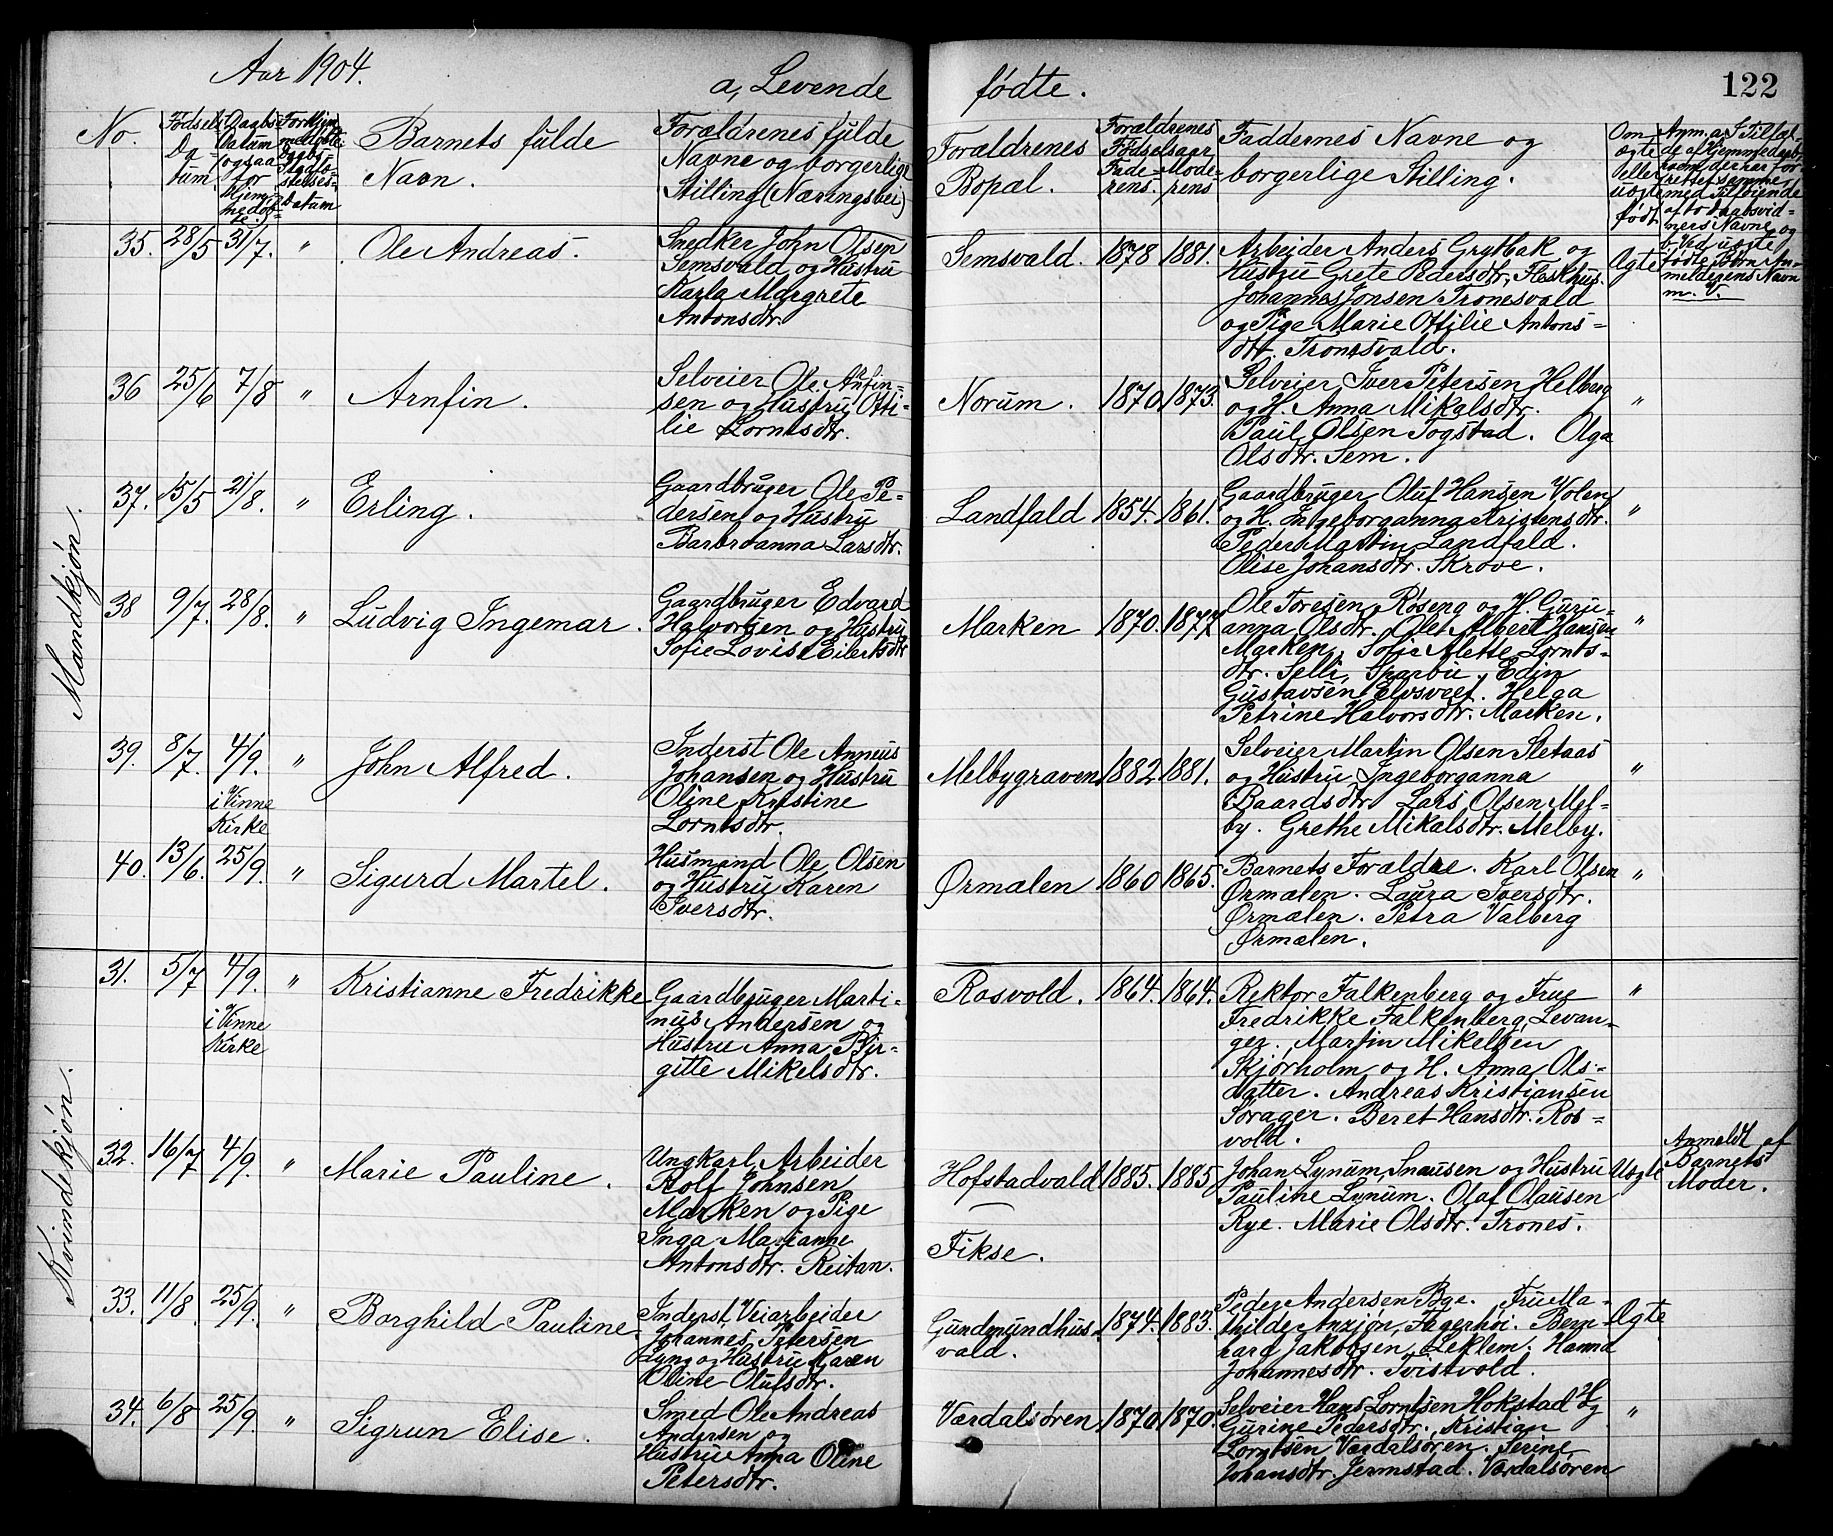 Aar 1904.
a, Levende fødte.
122
No.
Fødsels
Da-
tum
Daabs-
Datum
(ogsaa
for
Hjem-
medøbte
Datum
Barnets fulde
Navn.
Forældrenes fulde
Navne og borgerlige
Stilling (Næringsvei)
Forældrenes
Bopæl.
Forældrenes
Fødselsaar
Fade-
rens.
Mode-
rens
Faddernes Navne og
borgerlige Stilling.
Om
ægte
eller
uægte
født.
Mandkjøn.
35. 28/5 31/7. " Ole Andreas.
Snedker John Olsen
Semsvald og Hustru
Karla Margrete
Antonsdtr.
Semsvald. 1878 1881.
Arbeider Anders Grytbak og
Hustru Grete Pedersdtr,
Johannes Jonsen Tronesvald
og Pige Marie Ottilie Antons=
dtr. Tronesvald.
Ægte
36 25/6 7/8 " Arnfin.
Selveier Ole Anfin-
sen og Hustru Otti-
lie Lorntsdtr.
Norum. 1870 1873.
Selveier Iver Petersen Helberg
og H. Anna Mikalsdtr.
Paul Olsen Togstad. Olga
Olsdtr. Sem.
"
37. 15/5 21/8. " Erling.
Gaardbruger Ole Pe-
dersen og Hustru
Barbroanna Larsdtr.
Landfald 1854. 1861.
Gaardbruger Oluf Hansen Volen
og H. Ingeborganna Kristensdtr.
Peder Martin Landfald.
Olise Johansdtr. Skrove.
"
38 9/7. 28/8. " Ludvig Ingemar.
Gaardbruger Edvard
Halvorsen og Hustru
Sofie Lovise Eilertsdtr
Marken 1870. 1877
Ole Toresen Røseng og H. Guru-
anna Olsdtr. Olet Albert Hansen
Marken, Sofie Alette Lornts-
dtr. Selli, Sparbu, Edin
Gustavsen Elvsveet. Helga
Petrine Halvorsdtr. Marken.
"
39. 8/7. 4/9. " John Alfred.
i Vinne
Kirke
Inderst Ole Anneus
Johansen og Hustru
Oline Kristine
Lorntsdtr.
Melbygraven 1882 1881.
Selveier Martin Olsen Sletaas
og Hustru Ingeborganna
Baardsdtr Lars Olsen Mel-
by. Grethe Mikalsdtr. Melby.
"
40. 13/6. 25/9. " Sigurd Martel.
Husmand Ole Olsen
og Hustru Karen
Iversdtr.
Ørmælen 1860 1865.
Barnets Forældre. Karl Olsen
Ørmælen. Laura Iversdtr.
Ørmælen. Petra Valberg
Ørmælen.
"
Kvindekjøn.
31. 5/7 4/9. " Kristianne Fredrikke
i Vinne
Kirke
Gaardbruger Marti-
nus Andersen og
Hustru Anna Bir-
gitte Mikelsdtr.
Rosvold. 1864. 1864.
Rektor Falkenberg og Frue
Fredrikke Falkenberg, Levan-
ger. Martin Mikelsen
Skjørholm og H. Anna Ols-
datter. Andreas Kristiansen
Sørager. Beret Hansdtr. Ros-
vold.
"
32. 16/7 4/9. " Marie Pauline.
Ungkarl, Arbeider
Rolf Johnsen
Marken og Pige
Inga Marianne
Antonsdtr. Reitan.
Hofstadvald 1885. 1885
Fikse.
Johan Lynum, Snausen og Hustru
Pauline Lynum. Olaf Olausen
Rye. Marie Olsdtr. Trones.
Uægte
Anmeldt af
Barnets
Moder.
33. 11/8. 25/9. " Borghild Pauline
Inderst, Veiarbeider
Johannes Petersen
Lyng og Hustru Karen
Oline Olufsdtr.
Gundmundhus
vald. 1874. 1883.
Peder Andersen Bye. Frue Ma-
thilde Anxjøn, Fagerhøi. Bern-
hard Jakobsen, Leklem. Hanna
Johannesdtr. Tvistvold.
Ægte
34. 6/8 25/9. " Sigrun Elise.
Smed Ole Andreas
Andersen og
Hustru Anna Oline
Petersdtr.
Værdalsøren 1870 1870.
Selveier Hans Lorntsen Hokstad H
Gurine Pedersdtr. Kristian
Lorntsen Værdalsøren. Serine
Johansdtr. Jermstad. Værdalsøren
"